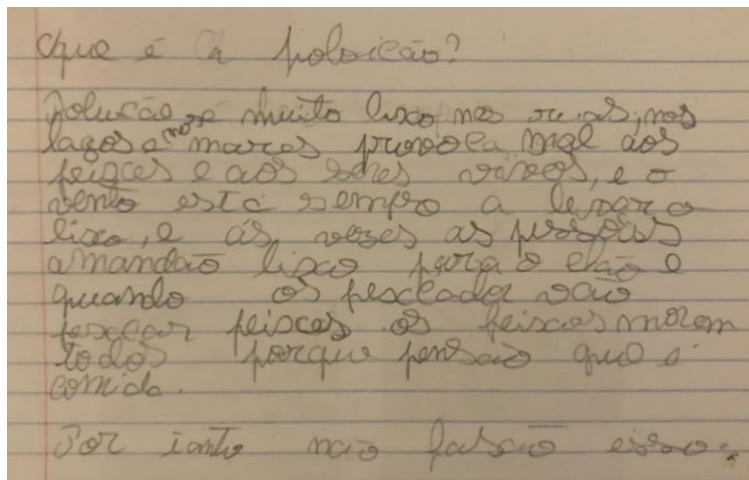 Que é a poloição?
Polução é muito lixo nas ruas, nos
lagos e nos mares provoca mal aos
peixes e aos seres vivos, e o
vento está sempro a levar o
lixo, e ás vezes as pessoas
amandão lixo para o chão e
quando os pescador vão
pescar peixes os peixes morem
todos porque pensão que é
comida.
Por tanto não fasão esso.